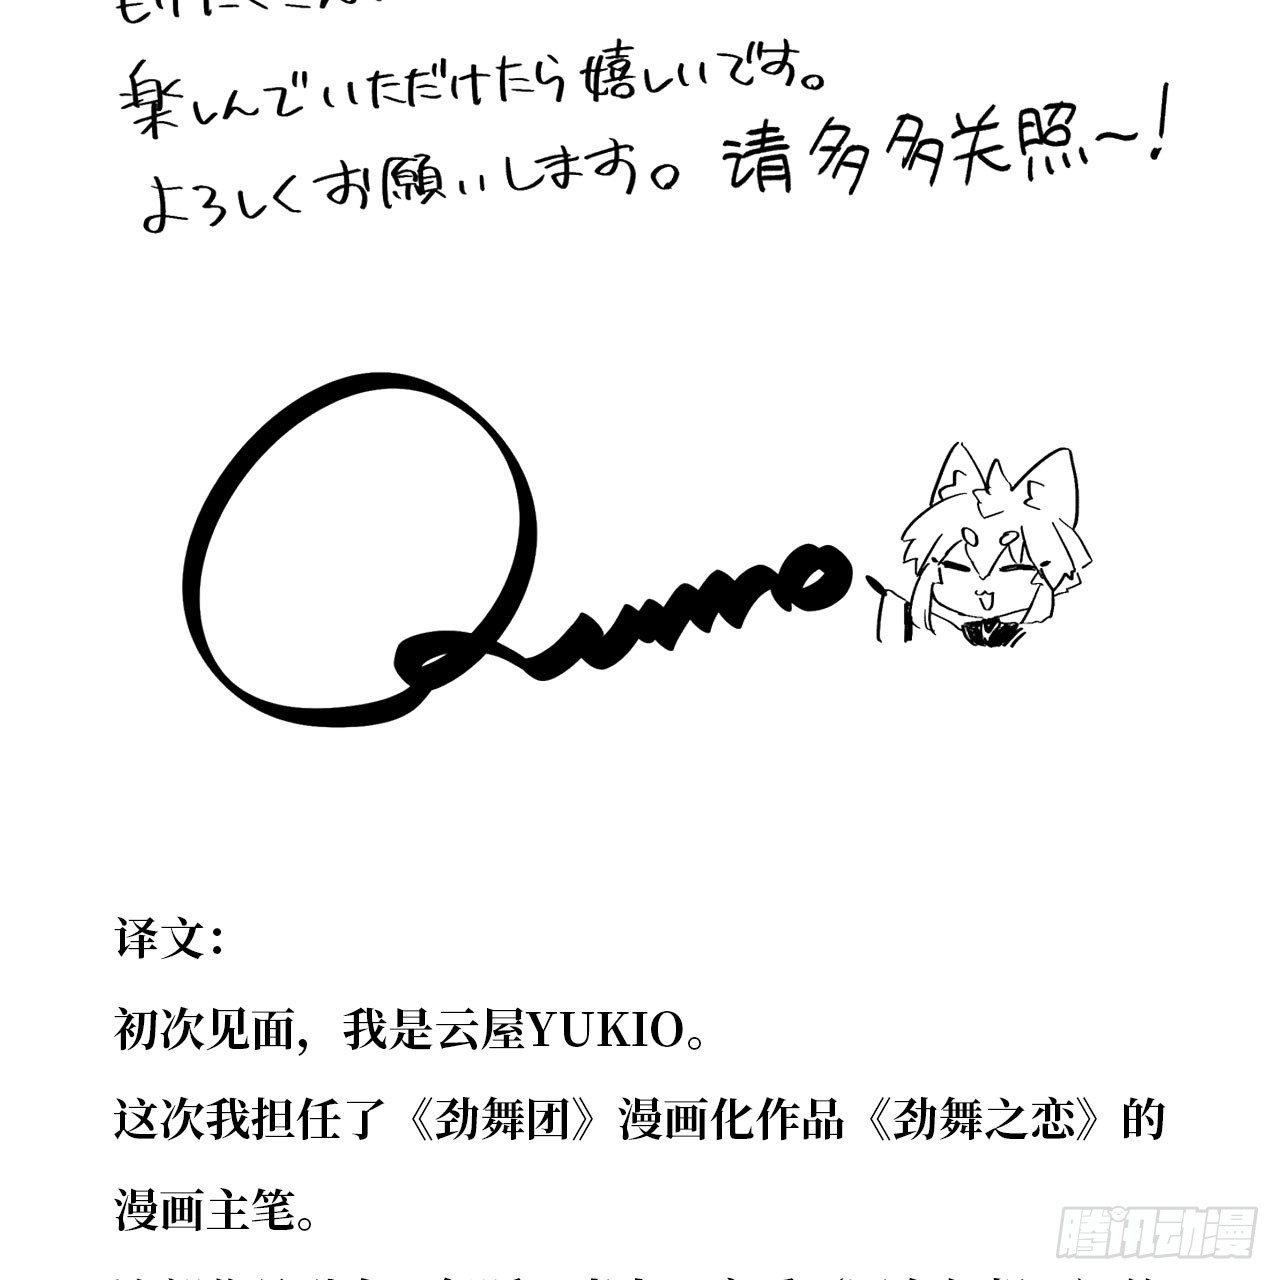 楽しんでいただけたら嬉しいです。
よろしくお願いします。请多多关照～！
译文：
初次见面，我是云屋YUKIO。
这次我担任了《劲舞团》漫画化作品《劲舞之恋》的
漫画主笔。
腾讯动漫